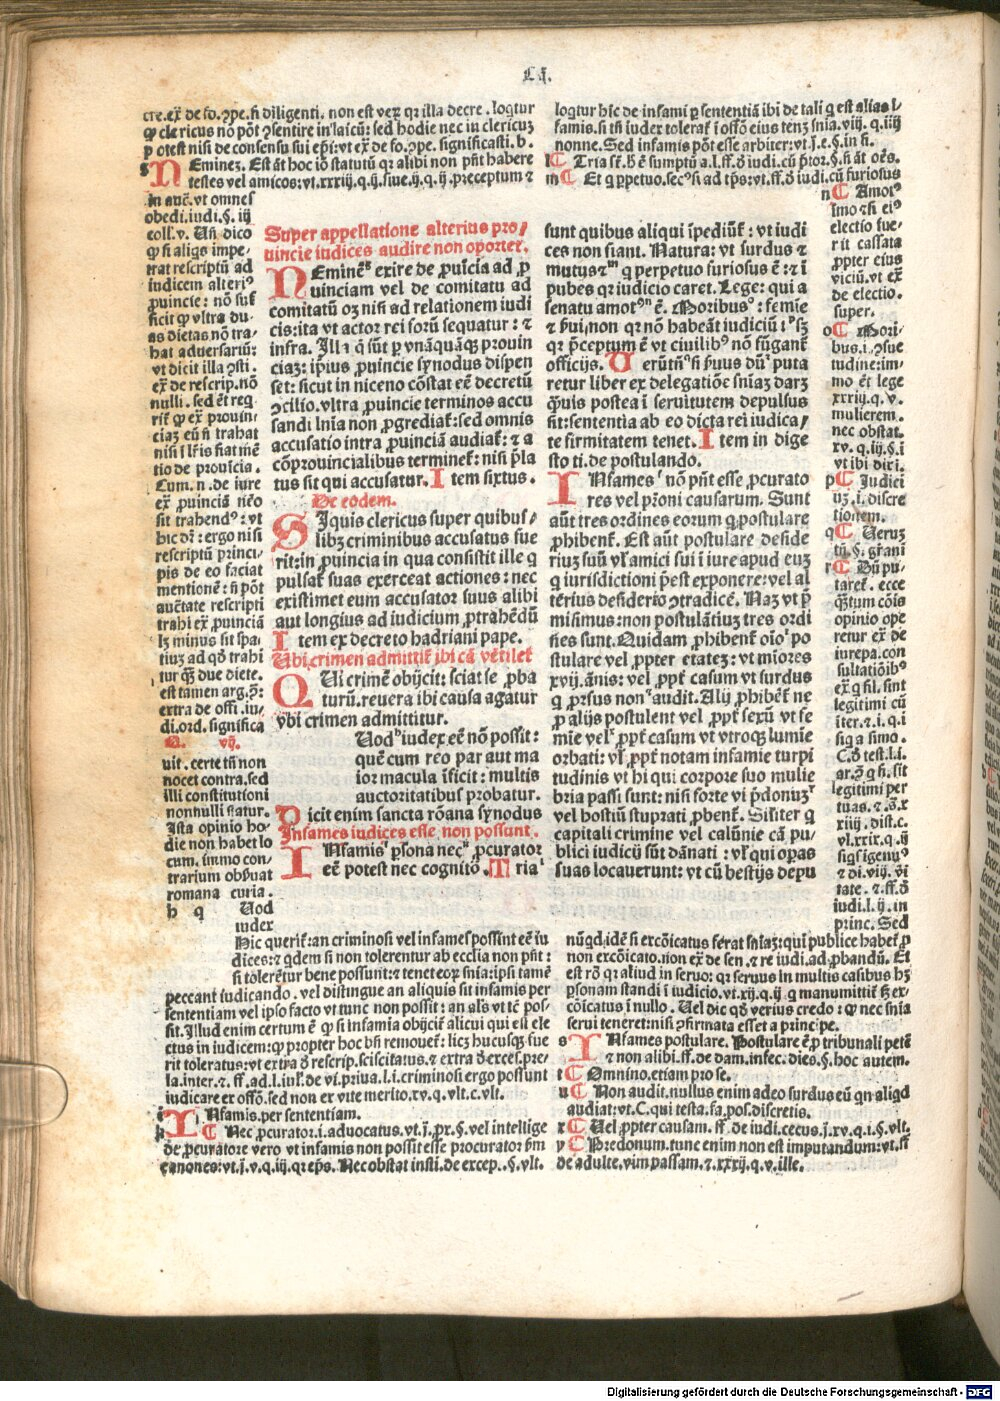 Cā.
cre.eꝝ de fo.ꝯpe.ſi diligenti. non est veꝝ qꝛ illa decre. loqtur
ꝙ clericus nō pōt ꝯsentire in laicū: sed hodie nec in clericuꝫ
potest nisi de consensu sui epī: vt eꝝ de fo.ꝯpe. significasti. b.
Eminez. Est āt hoc iō statutū qꝛ alibi non pñt habere
testes vel amicos: vt. xxxiij. q. ij. siue. ij. q. ij. preceptum ⁊
in auc̄. vt omnes
obedi. iudi. §. iij
coll. v. Uñ dico
ꝙ si aliqs impe-
trat rescriptū ad
iudicem alteriꝰ
ꝓuincie: nō suf
ficit ꝙ vltra du-
as dietas nō tra-
hat aduersariū:
vt dicit illa ꝯsti.
eꝝ de rescrip. nō
nulli. sed ēt req
ciaꝫ eū ñ trahat
nisi ī lr̄is fiat mē
tio de prouīcia.
Cum. n. de iure
eꝝ ꝓuinciā nēo
sit trahendꝰ: vt
hic dr̄: ergo nisi
rescriptū princi-
pis de eo faciat
mentionē: ñ pōt
auc̄tate rescripti
trahi eꝝ ꝓuinciā
lꝫ minus sit spa-
tiuꝫ ad qd̄ trahi
tur qꝫ due diete.
est tamen arg. ꝯ:
extra de offi. iu.
di. ord. significa
Q. vij.
uit. certe tñ non
nocet contra. sed
illi constitutioni
nonnulli statur.
Ista opinio ho-
die non habet lo
cum. immo con-
trarium obẜuat
romana curia.
h q Uod
iudex
Super appellatione alterius pro-
uincie iudices audire non oportet.
NEminēˢ exire de ꝓuīcia ad ꝓ
uinciam vel de comitatu ad
comitatū oꝫ nisi ad relationem iudi
cis: ita vt actor rei forū sequatur: ⁊
infra. Illa q̄ sūt p vnāquāqꝫ prouin
ciaꝫ: ipsius ꝓuincie synodus dispen
set: sicut in niceno cōstat eē decretū
ꝯcilio. vltra ꝓuincie terminos accu
sandi lnīa non ꝓgrediaꝉ: sed omnis
accusatio intra ꝓuinciā audiaꝉ: ⁊ a
cōprouincialibus termineꝉ: nisi p̄la
tus sit qui accusatur. Item sixtus.
De eodem.
SIquis clericus super quibus-
libꝫ criminibus accusatus fue
rit: in ꝓuincia in qua consistit ille q
pulsaꝉ suas exerceat actiones: nec
existimet eum accusator suus alibi
aut longius ad iudicium ꝓtrahēdū
Item ex decreto hadriani pape.
Ubi crimen admittiꝉ ibi cā vētileꝉ
QUi crimē obijcit: sciat se ꝓba
turū. reuera ibi causa agatur
vbi crimen admittitur.
Uodʰ iudex eē nō possit:
quē cum reo par aut ma
ior macula īficit: multis
auctoritatibus probatur.
Dicit enim sancta rōana synodus
Infames iudices esse non possunt.
INfamisⁱ ꝑsona necᵏ ꝓcurator
eē potest nec cognitō. Triaˡ
loqtur hic de infami ꝑ sententiā ibi de tali q est alias ī-
famis. si tñ iudex toleraꝉ ī offō eius tenꝫ snīa. viij. q. iiij
nonne. Sed infamis pōt esse arbiter: vt. j. e. §. in fi.
l Tria sc̄. h̄ ē sumptū a. l. ff. ð iudi. cū pr̄toꝛ. §. ñ āt oēs.
m Et q ꝑpetuo. secꝰ si ad tp̄s: vt. ff. ð iudi. cū furiosus
sunt quibus aliqui īpediūꝉ: vt iudi
ces non fiant. Natura: vt surdus ⁊
mutus ⁊ᵐ q perpetuo furiosus ē: ⁊ ī
pubes qꝛ iudicio caret. Lege: qui a
senatu amotꝰⁿ ē. Moribusᵒ: femīe
⁊ ẜui, non qꝛ nō habeāt iudiciū ᵖsꝫ
qꝛ p̄ceptum ē vt ciuilibꝰ nō fūganꝉ
officijs. Uerūtñ si ẜuus dūʳ puta
retur liber ex delegatiōe snīaꝫ darꝫ
qͣuis postea ī seruitutem depulsus
sit: sententia ab eo dicta rei iudica-
te firmitatem tenet. Item in dige
sto ti. de postulando.
INfamesˢ nō pn̄t esse ꝓcurato
res vel pr̄oni causarum. Sunt
aūt tres ordines eorum q postulare
ꝓhibenꝉ. Est aūt postulare deside
riuꝫ suū vꝉ amici sui ī iure apud euꝫ
q iurisdictioni p̄est exponere: vel al
terius desiderio ꝯtradicē. Naꝫ vt p̄
misimus: non postulātiuꝫ tres ordi
nes sunt. Quidam ꝓhibenꝉ oīoᵗ po
stulare vel ꝓpter etateꝫ: vt mīores
xvij. ānis: vel ꝓpꝉ casum vt surdus
q ꝓrsus nonᵘ audit. Alij ꝓhibēꝉ ne
ꝓ alijs postulent vel ꝓpꝉ sexū vt fe
mīe velˣ ꝓpꝉ casum vt vtroqꝫ lumīe
orbati: vꝉ ꝓpꝉ notam infamie turpi
tudinis vt hi qui corpore suo mulie
bria passi sunt: nisi forte vi p̄donuꝫʸ
vel hostiū stuprati ꝓbenꝉ. Siliter q
capitali crimine vel calūnie cā pu-
blici iudicij sūt dānati: vꝉ qui oꝑas
suas locauerunt: vt cū bestijs depu
n Amotꝰ
imo ⁊ si eiꝰ
electio fue-
rit cassata
ꝓpter eius
viciū. vt eꝝ
de electio.
super.
o Mori-
bus. i. ꝯsue
tudine: im-
mo ēt lege
xxxiij. q. v.
mulierem.
nec obstat.
xv. q. iij. §. i
vt ibi diri.
p Judici
uꝫ. i. discre
tionem.
q Ueruꝫ
tñ. §. gr̄ani
r Dū pu-
taret. ecce
qͣtum cōis
opinio ope
retur eꝝ de
iure pa. con
sultatiōibꝰ
eꝝ q fil. sint
legitimi cū
īter. ⁊. i. q. i
siq a simo.
C. ð test. l. i.
ar. ꝯ q ñ. sit
legitimi per
tuas. ⁊. s. x
xiiij. dist. c.
vl. xxix. q. ij
siqs īgenuꝰ
⁊ di. viij. vi
tate. ⁊. ff. ð
iudi. l. ij. in
princ. Sed
Hic queriꝉ: an criminosi vel infames possint eē iu
dices: ⁊ qdem si non tolerentur ab ecclia non pn̄t:
si tolerētur bene possunt: ⁊ tenet eoꝝ snīa: ipsi tamē
peccant iudicando. vel distingue an aliquis sit infamis per
sententiam vel ipso facto vt tunc non possit: an als̄ vt tc̄ pos-
sit. Illud enim certum ē ꝙ si infamia obijciꝉ alicui qui est ele
ctus in iudicem: ꝙ propter hoc bn̄ remoueꝉ: licꝫ hucusqꝫ fue
rit toleratus: vt extra ð rescrip. sciscitatus. ⁊ extra ð excep. pre-
la. inter. ⁊. ff. ad. l. iul. de vi. priua. l. i. criminosi ergo possunt
iudicare ex offō. sed non ex vite merito. xv. q. vlt. c. vlt.
i INfamis. per sententiam.
k Nec ꝓcurator. i. aduocatus. vt. j. pr̄. §. vel intellige
de ꝓcuratore vero vt infamis non possit esse procurator ẜm
canones: vt. j. v. q. iij. qꝛ ep̄s. Nec obstat insti. de excep. §. vlt.
nūqd idē si excōicatus ferat snīaꝫ: qui publice habeꝉ ꝓ
non excōicato. non eꝝ de sen. ⁊ re iudi. ad ꝓbandū. Et
est rō qꝛ aliud in seruo: qꝛ seruus in multis casibus hꝫ
ꝑsonam standi ī iudicio. vt. xij. q. ij. q manumittiꝉ sꝫ ex-
cōicatus ī nullo. Uel dic qd̄ verius credo: ꝙ nec snīa
serui teneret: nisi ꝯfirmata esset a principe.
s INfames postulare. Postulare ē ꝓ tribunali petē
⁊ non alibi. ff. de dam. infec. dies. §. hoc autem.
t Omnino. etiam pro se.
u Non audit. nullus enim adeo surdus eū qn aliqd
audiat: vt. C. qui testa. fa. pos. discretis.
x Uel ꝓpter causam. ff. de iudi. cecus. j. xv. q. i. §. vlt.
y Predonum. tunc enim non est imputandum: vt. ff
de adulte. vim passam. ⁊. xxxij. q. v. ille.
Digitalisierung gefördert durch die Deutsche Forschungsgemeinschaft - DFG